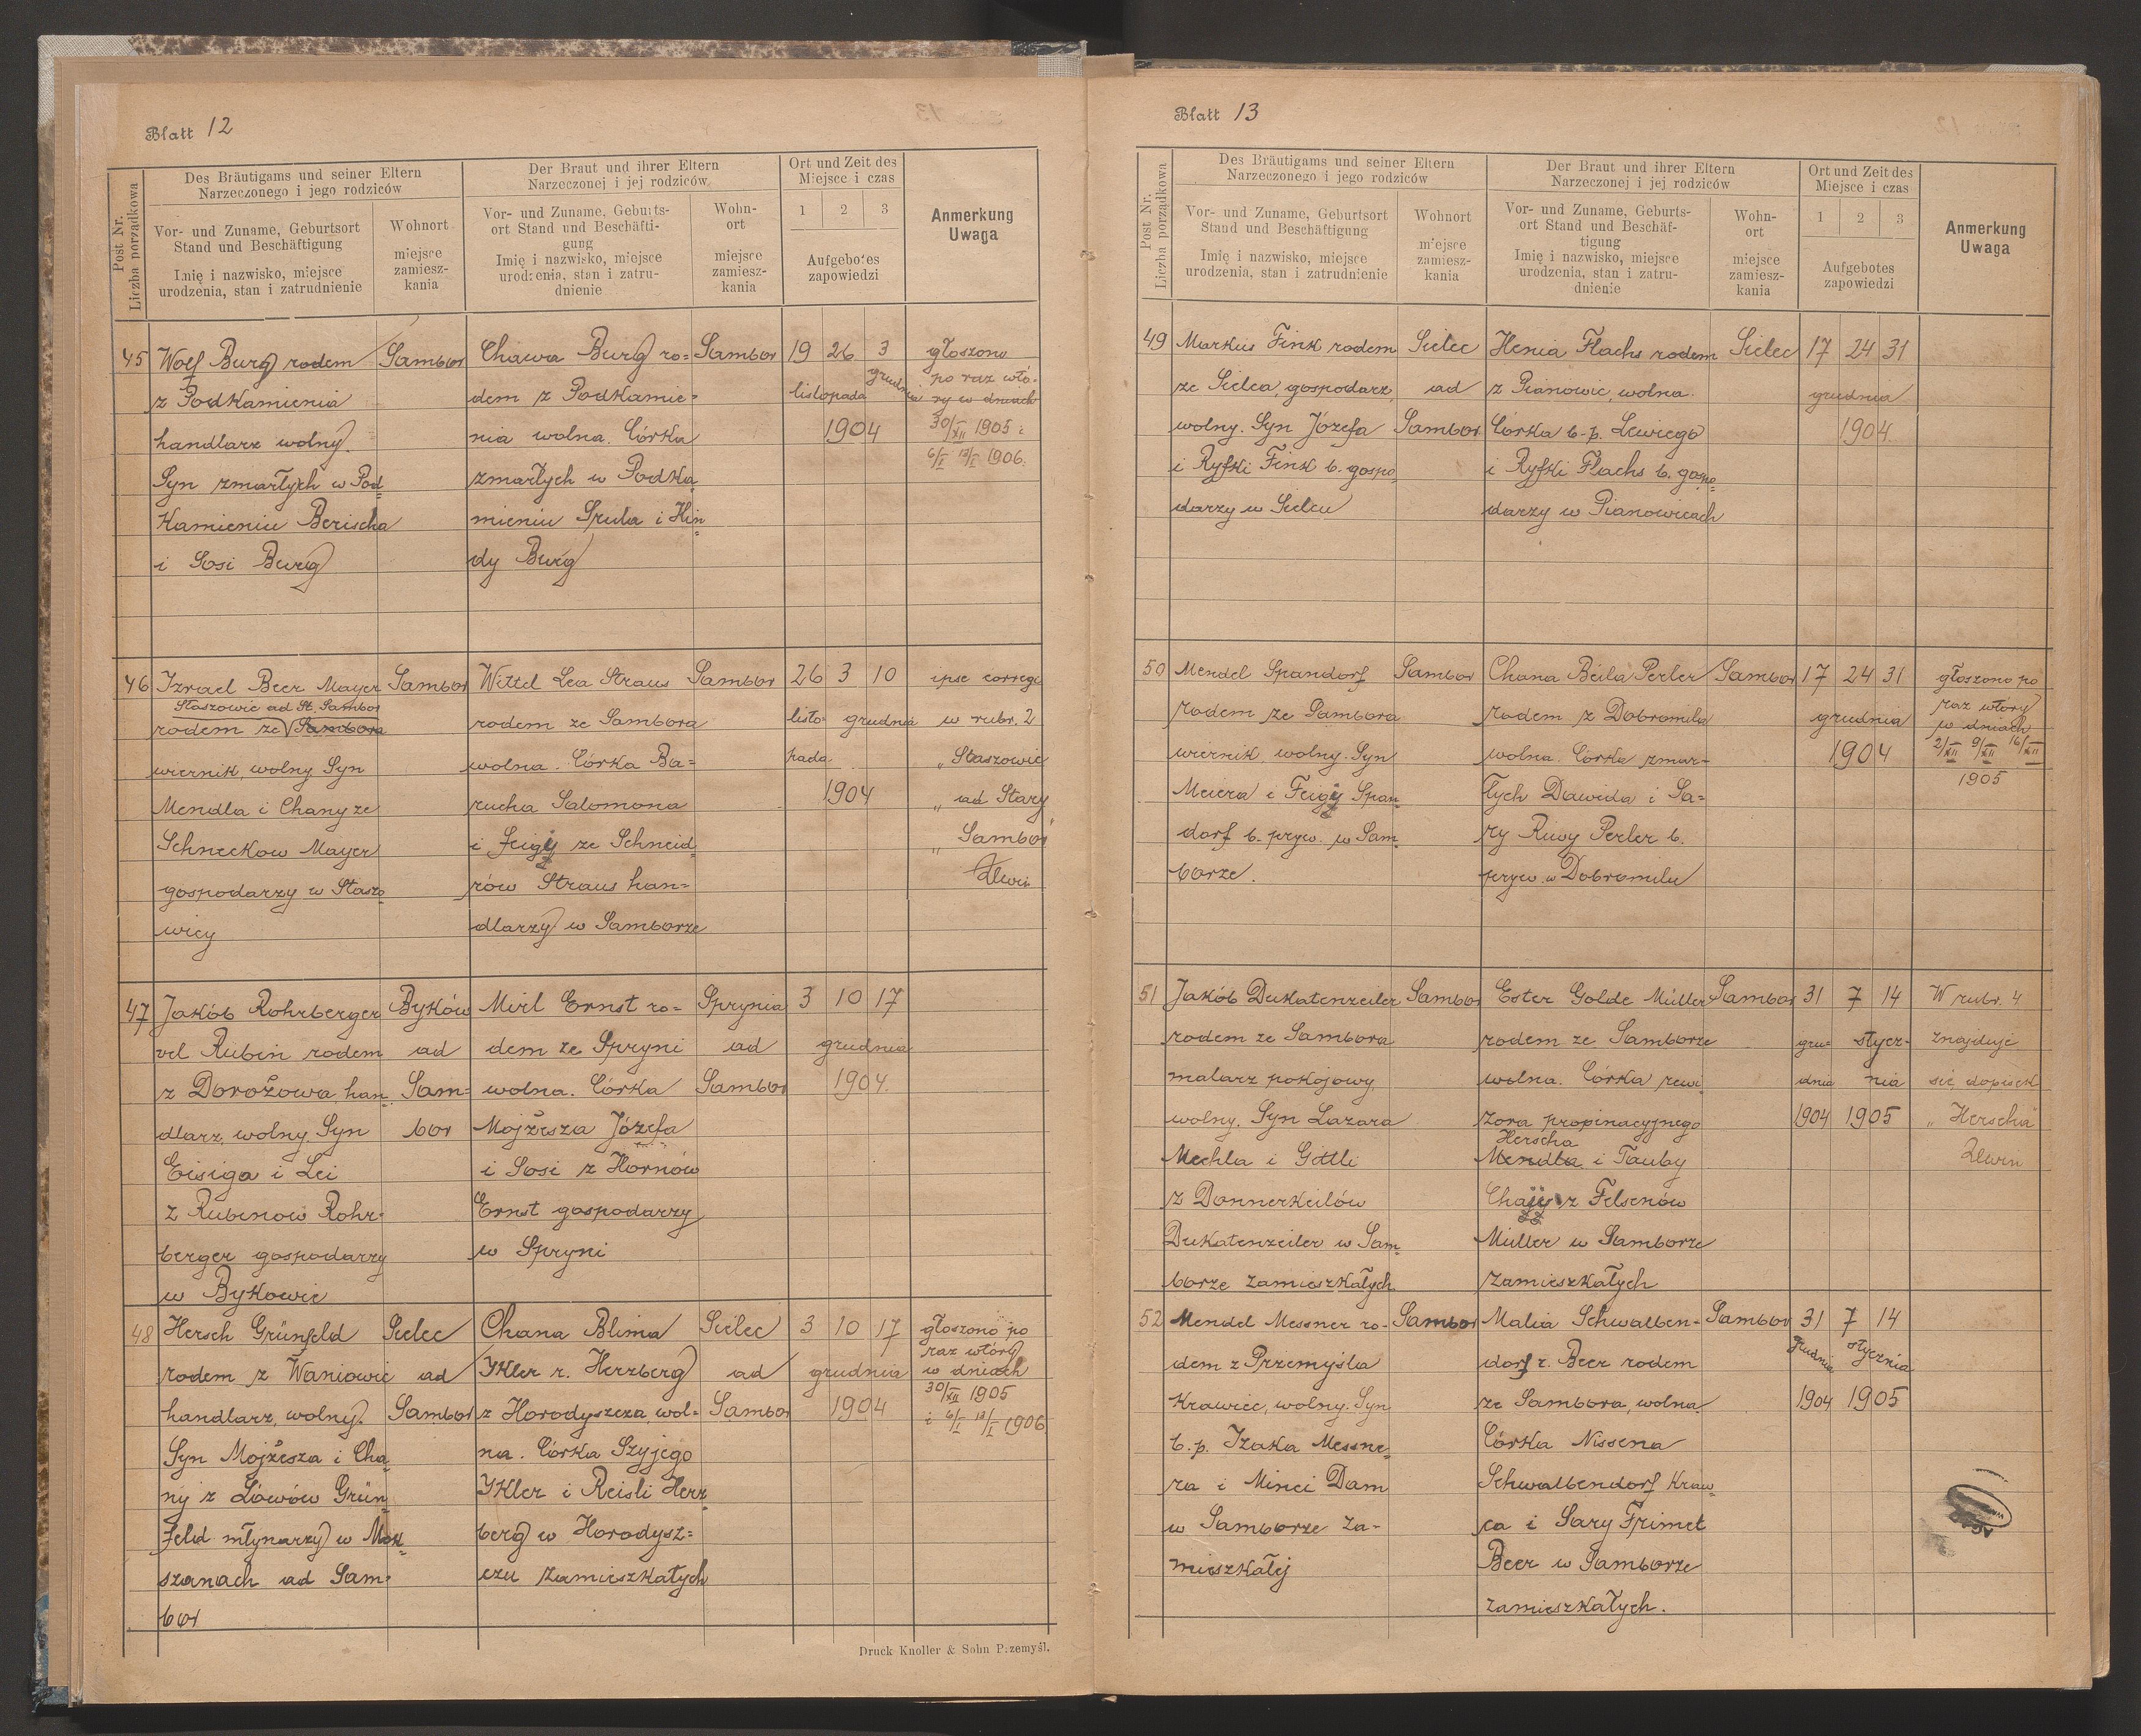 Blatt 12
Post Nr.
Liczba porządkowa
Des Bräutigams und seiner Eltern
Narzeczonego i jego rodziców
Der Braut und ihrer Eltern
Narzeczonej i jej rodziców
Ort und Zeit des
Miejsce i czas
Anmerkung
Uwaga
Vor- und Zuname, Geburtsort
Stand und Beschäftigung
Imię i nazwisko, miejsce
urodzenia, stan i zatrudnienie
Wohnort
miejsce
zamiesz-
kania
Vor- und Zuname, Geburts-
ort Stand und Beschäfti-
gung
Imię i nazwisko, miejsce
urodzenia, stan i zatru-
dnienie
Wohn-
ort
miejsce
zamiesz-
kania
1 2 3
Aufgebotes
zapowiedzi
45
Wolf Burg rodem
z Podkamienia
handlarz wolny.
Syn zmarłych w Pod-
kamieniu Berischa
i Sosi Burg
Sambor
Chawa Burg ro-
dem z Podkamie-
nia wolna. Córka
zmarłych w Podka-
mieniu Spula i Hin-
dy Burg
Sambor
19 26 3
listopada grudnia
1904
głoszono
po raz wtó-
ry w dniach
30/XII 1905 i
6/I 13/I 1906.
46
Izrael Beer Mayer
Staszowic ad St. Sambor
rodem ze Sambora
wiernik, wolny. Syn
Mendla i Chany ze
Schneckow Mayer
gospodarzy w Staszo-
wicy
Sambor
Wittel Lea Straus
rodem ze Sambora
wolna. Córka Ba-
rucha Salomona
i Feigi ze Schneid-
rów Straus han-
dlarzy w Samborze
Sambor
26 3 10
listo- grudnia
pada
1904
ipse corregi
w rubr. 2
„Staszowic
„ad Stary
„Sambor"
47
Jakób Rohrberger
vel Rubin rodem
z Dorożowa, han-
dlarz, wolny. Syn
Eisiga i Lei
z Rubinow Rohr-
berger gospodarzy
w Bykowie
Byków
ad
Sam-
bor
Mirl Ernst ro-
dem ze Spryni
wolna. Córka
Mojżesza Józefa
i Sosi z Hornów
Ernst gospodarzy
w Spryni
Sprynia
ad
Sambor
3 10 17
grudnia
1904.
48
Hersch Grünfeld
rodem z Waniowic
handlarz, wolny.
Syn Mojżesza i Cha-
ny z Löwów Grün-
feld młynarzy w Mok-
szanach ad Sam-
bor
Sielec
ad
Sambor
Chana Blima
Ikler r. Herzberg
z Horodyszcza, wol-
na. Córka Szyjego
Ikler i Reisli Herz-
berg w Horodysz-
czu zamieszkałych
Sielec
ad
Sambor
3 10 17
grudnia
1904
głoszono po
raz wtóry
w dniach
30/XII 1905
i 6/I 13/I 1906
Druck Knoller & Sohn Przemyśl.
Blatt 13
Post Nr.
Liczba porządkowa
Des Bräutigams und seiner Eltern
Narzeczonego i jego rodziców
Der Braut und ihrer Eltern
Narzeczonej i jej rodziców
Ort und Zeit des
Miejsce i czas
Anmerkung
Uwaga
Vor- und Zuname, Geburtsort
Stand und Beschäftigung
Imię i nazwisko, miejsce
urodzenia, stan i zatrudnienie
Wohnort
miejsce
zamiesz-
kania
Vor- und Zuname, Geburts-
ort Stand und Beschäf-
tigung
Imię i nazwisko, miejsce
urodzenia, stan i zatru-
dnienie
Wohn-
ort
miejsce
zamiesz-
kania
1 2 3
Aufgebotes
zapowiedzi
49
Markus Fink rodem
ze Sielca, gospodarz,
wolny. Syn Józefa
i Ryfki Fink b. gospo-
darzy w Sielcu
Sielec
ad
Sambor
Henia Flachs rodem
z Pianowic, wolna.
Córka b. p. Lewiego
i Ryfki Flachs b. gospo-
darzy w Pianowicach
Sielec
17 24 31
grudnia
1904.
50
Mendel Spandorf
rodem ze Sambora
wiernik, wolny. Syn
Meiera i Feigi Span-
dorf b. pryw. w Sam-
borze.
Sambor
Chana Beila Perler
rodem z Dobromila
wolna. Córka zmar-
łych Dawida i Sa-
ry Riwy Perler b.
pryw. w Dobromilu
Sambor
17 24 31
grudnia
1904
głoszono po
raz wtóry
w dniach
2/XII 9/XII 16/XII
1905
51
Jakób Dukatenzeiler
rodem ze Sambora
malarz pokojowy
wolny. Syn Lazara
Mechla i Gittli
z Donnerkeilów
Dukatenzeiler w Sam-
borze zamieszkałych
Sambor
Ester Golde Müller
rodem ze Samborze
wolna. Córka rewi-
zora propinacyjnego
Herscha
Mendla i Tauby
Chaji z Felsenów
Müller w Samborze
zamieszkałych
Sambor
31 7 14
gru- stycz-
dnia nia
1904 1905
W rubr. 4
znajduje
się dopisek
„Herscha"
52
Mendel Messner ro-
dem z Przemyśla
Krawiec, wolny. Syn
b. p. Izaka Messne-
ra i Minci Dam
w Samborze za-
mieszkałej
Sambor
Malia Schwalben-
dorf r. Beer rodem
ze Sambora, wolna.
Córka Nissena
Schwalbendorf kraw-
ca i Sary Frimet
Beer w Samborze
zamieszkałych.
Sambor
31 7 14
grudnia stycznia
1904 1905